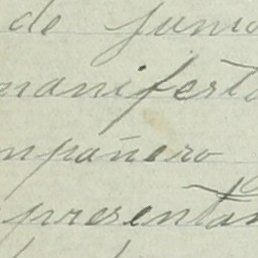 de junio
manifesta
mpañero
presentan